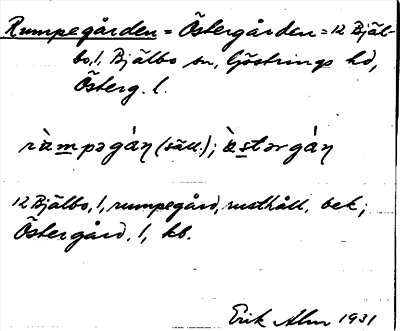 Rumpegården = Östergården = 12 Bjäl-
bo, 1, Bjälbo sn, Göstrings hd,
Österg. l.
ràmpəgán (säll.); ästərgán
12 Bjälbo, 1, rumpegård, rusthåll, bek;
Östergård, 1, kb.
Erik Alm 1931